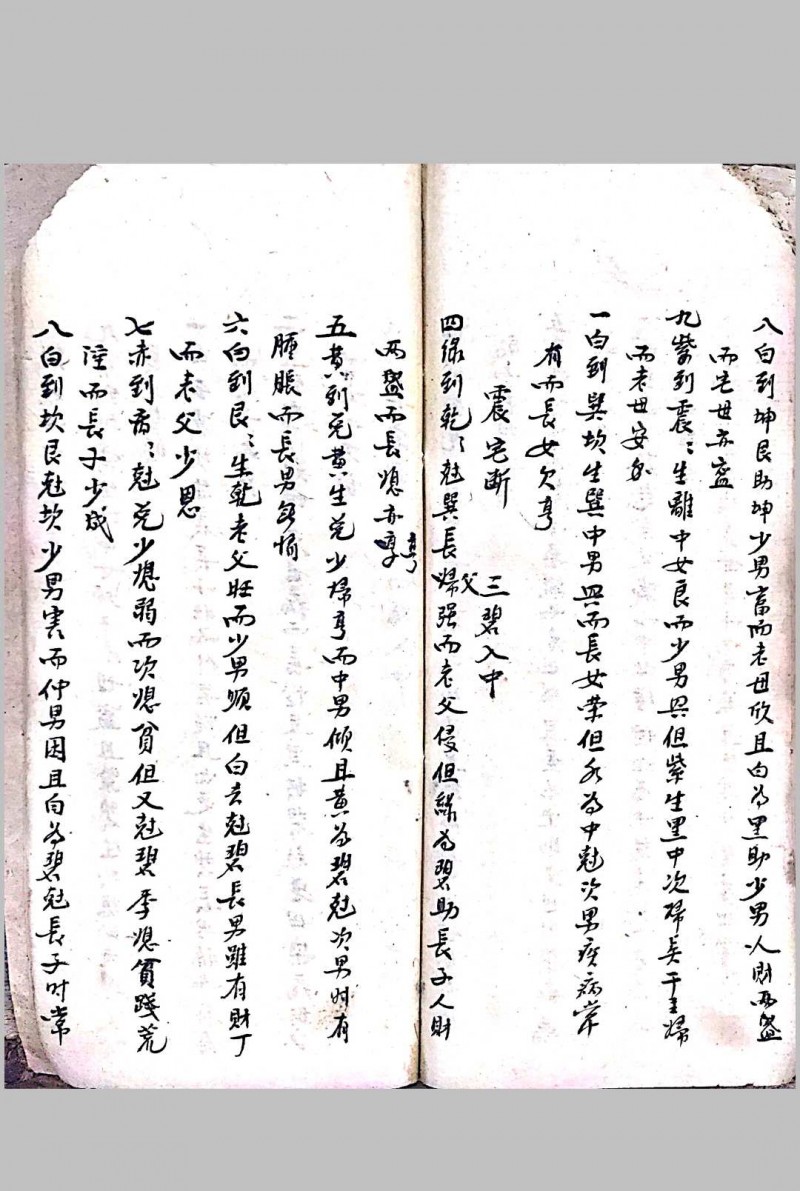 八白到坤艮助坤少男富而老母欣且白為黑助少男人財兩盛
而宅母亦盛
九紫到震〻生離中女良而少男興但紫生黑中次婦夫主歸
而老母安
一白到巽坎生巽中男興而長女榮但水為中尅次男疾病常
有而長女欠亨
震宅断 三碧入中
四綠到乾〻尅巽長婦強而老父侵但綠為碧助長子人財
父
兩盛而長媳亦亨
五黃到兌黃生兌少婦亨而中男傾且黃為碧尅次男时有
腫脹而長男
六白到艮〻生乾老父旺而少男順但白去尅碧長男雖有財丁
而老父少恩
七赤到〻尅兌少媳弱而次媳貧但又尅碧季媳貧賤荒
淫而長子少成
八白到坎艮尅坎少男害而仲男困且白為碧尅長子时常